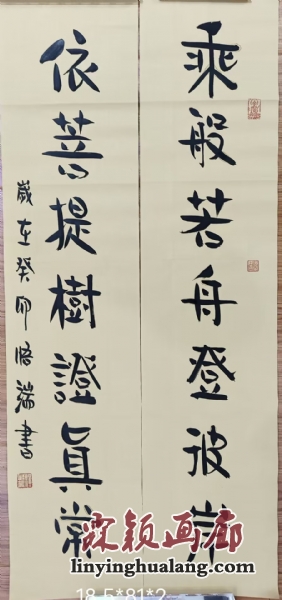 乘般若舟登彼岸
依菩提樹證眞常
歲在癸卯悟瑞書
霖颖画廊
linyinghualang.com
18.5*81*2